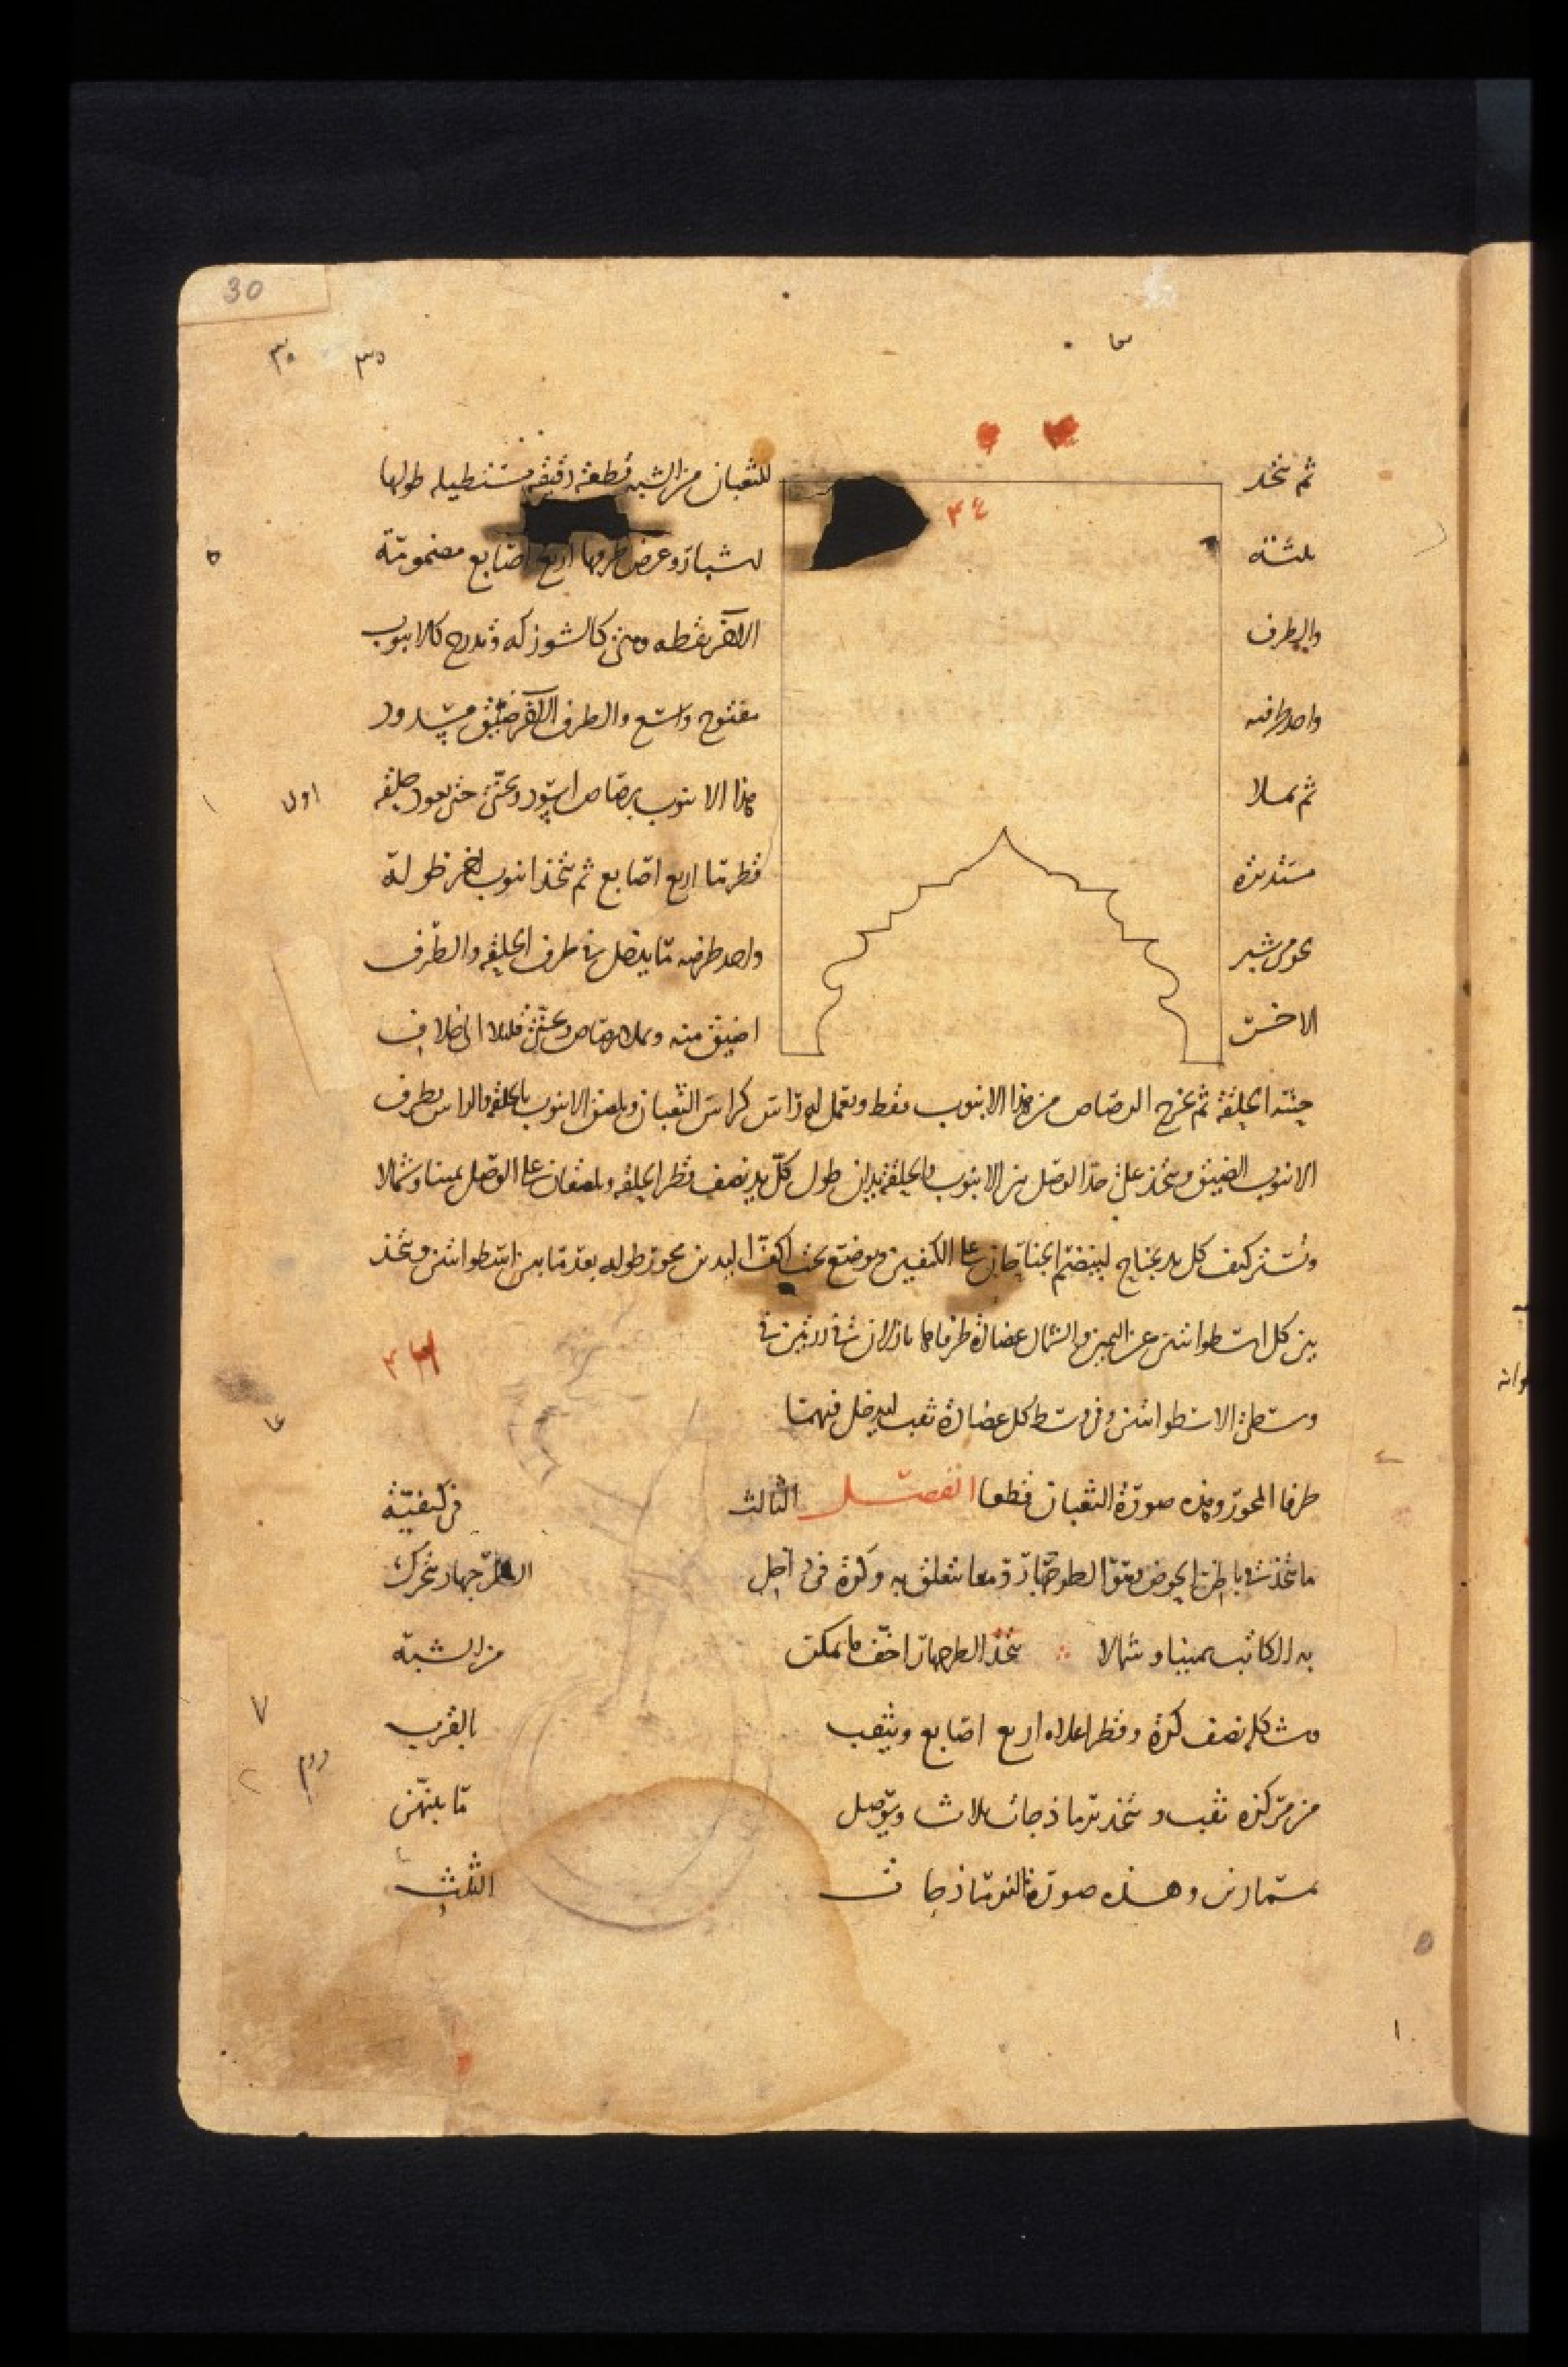 30
٣٠ ٣٥
ثم يتخذ للثعبان من الشبه قطعة دقيقة مستطيله طولها
٣٤
ثلثة اشبار وعرض طرفها اربع اصابع مضمومة
والطرف الاخر نقطه كالشوزكه وتدرج كالانبوب
واحد طرفيه مفتوح واسع والطرف الاخر ضيق مسدود
ثم يملا هذا الانبوب برصاص اسود ويحنى حتى يعود حلقه
اول
مستديرة قطرها اربع اصابع ثم يتخذ انبوب اخر طوله
نحو من شبر واحد طرفيه ما يدخل في طرف الحلقه والطرف
الاخر اضيق منه ويملا رصاص ويحنى قليلا الى خلاف
جنبة الحلقة ثم يخرج الرصاص من هذا الانبوب فقط ويعمل له راس كراس الثعبان ويلصق الانبوب بالحلقه والراس بطرف
الانبوب الضيق ويتخذ على حد الوصل من الانبوب والحلقه يدان طول كل يد نصف قطر الحلقه ويلصقان على الوصل يمينا وشمالا
وتستر كتف كل يد بجناح لينضم الجناحان على الكتفين ويوضع تحت اكف اليدين محور طوله بعد ما بين اسطوانتين ويتخذ
بين كل اسطوانتين عن اليمين والشمال عضادة طرفاها نازلان في رزتين في
وسطي الاسطوانتين وفي وسط كل عضادة ثقب ليدخل فيهما
طرفا المحور وهذه صورة الثعبان قطعا الفصل الثالث في كيفية
ما يتخذ في باطن الحوض وهو الطرجهار وما يتعلق به وكرة في داخل الطرجهار تحرك
به الكاتب يمينا وشمالا يتخذ الطرجهار اخف ما يمكن من الشبه
وشكله نصف كرة وقطر اعلاه اربع اصابع ويثقب بالقرب
٧
دوم
من مركزه ثقب ويتخذ نرماذجات ثلاث ويوصل ما بينهن
بمسمارين وهذه صورة النرماذجات الثلث